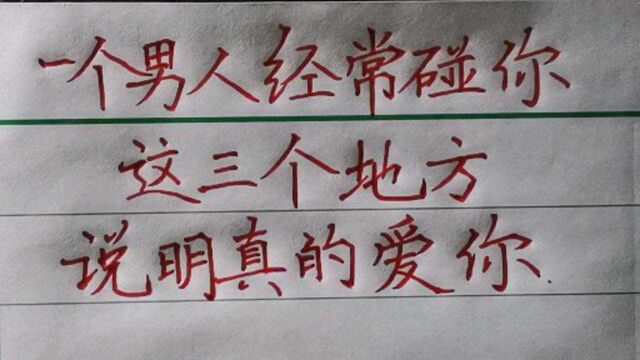 一个男人经常碰你
这三个地方
说明真的爱你.